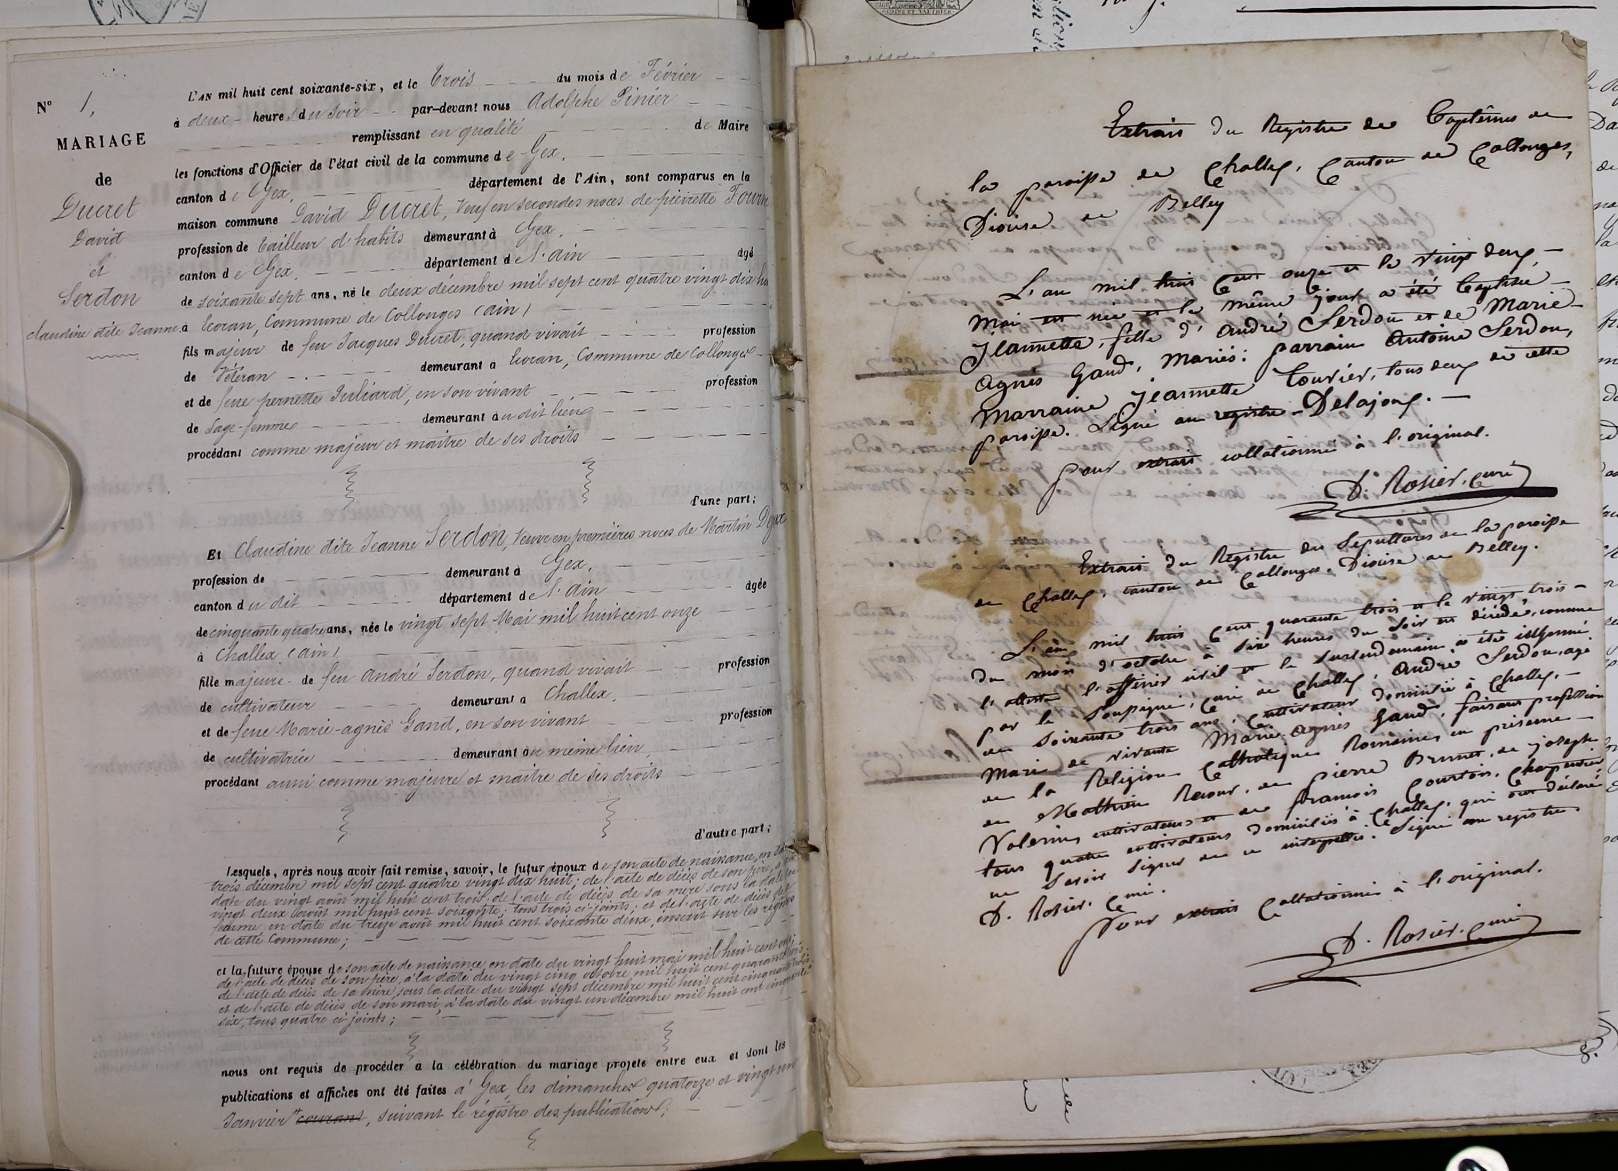 N° 1.
MARIAGE
de
Ducret
David
et
Serdon
Claudine dite Jeanne
L'AN mil huit cent soixante-six, et le Trois du mois de Février
à deux heures du soir par-devant nous Adolphe Pinier
remplissant en qualité de Maire
les fonctions d'Officier de l'état civil de la commune de Gex,
canton de Gex, département de l'Ain, sont comparus en la
maison commune David Ducret, veuf en secondes noces de pierrette
profession de tailleur d'habits demeurant à Gex,
canton de Gex, département de l'ain agé
de soixante sept ans, né le deux décembre mil sept cent quatre vingt dix
à Ecoran, Commune de Collonges (ain)
fils majeur de feu Jacques Ducret, quand vivait profession
de Vétéran demeurant a Ecoran, Commune de Collonges
et de feue pernette Julliard, en son vivant profession
de sage-femme demeurant au dit lieu
procédant comme majeur et maitre de ses droits
d'une part;
Et Claudine dite Jeanne Serdon, veuve en premières noces de Martin
profession de demeurant à Gex,
canton du dit département de l'ain agée
de cinquante quatre ans, née le vingt sept Mai mil huit cent onze
à Challex (ain)
fille majeure de feu André Serdon, quand vivait profession
de cultivateur demeurant a Challex,
et de feue Marie-agnès Gand, en son vivant profession
de cultivatrice demeurant au même lieu
procédant aussi comme majeure et maitre de ses droits
d'autre part;
Lesquels, après nous avoir fait remise, savoir, le futur époux de son acte de naissance, en
trois décembre mil sept cent quatre vingt dix huit; de l'acte de décès de son père,
date du vingt août mil huit cent trois, de l'acte de décès de sa mère sous la date
vingt deux mil huit cent soixante, tous trois ci-joints; et de l'acte de décès de
femme, en date du treize août mil huit cent soixante deux, inscrit sur les registres
de cette Commune;
et la future épouse de son acte de naissance, en date du vingt huit mai mil huit cent
de l'acte de décès de son père, à la date du vingt cinq octobre mil huit cent quarante
de l'acte de décès de sa mère sous la date du vingt sept décembre mil huit cent cinquante
et de l'acte de décès de son mari, à la date du vingt un décembre mil huit cent cinquante
six, tous quatre ci joints;
nous ont requis de procéder a la célébration du mariage projeté entre eux et dont les
publications et affiches ont été faites à Gex, les dimanches quatorze et vingt un
Janvier courant, suivant le registre des publications;
Extrait du Registre des Baptêmes de
la paroisse de Challex, Canton de Collonges,
Diocèse de Belley
L'an mil huit cent onze et le vingt deux
Mai est née et le même jour a été baptisée
Jeannette, fille d'André Serdon et de Marie
Agnès Gand, mariés: parrain Antoine Serdon,
Marraine Jeannette Tourier, tous deux de cette
paroisse. Signé au registre - Delajoux.
pour extrait collationné à l'original.
D. Rosier, curé
Extrait du Registre des Sépultures de la paroisse
de Challex, canton de Collonges, Diocèse de Belley.
L'an mil huit cent quarante trois et le vingt trois
du mois d'octobre à six heures du soir est décédé, comme
l'atteste l'officier civil et le surlendemain a été inhumé
par le soussigné, curé de Challex, André Serdon, agé
de soixante trois ans, cultivateur domicilié à Challex,
Mari de vivante Marie Agnès Gand, faisant profession
de la Religion Catholique Romaine, en présence
de Mathieu Recour, de pierre Brunet, de joseph
Valerin, cultivateurs et de françois Courtois, Charpentier
tous quatre cultivateurs domiciliés à Challex, qui ont déclaré
ne savoir signer de ce interpellés. Signé au registre
D. Rosier. Curé.
Pour extrait Collationné à l'original.
D. Rosier. Curé